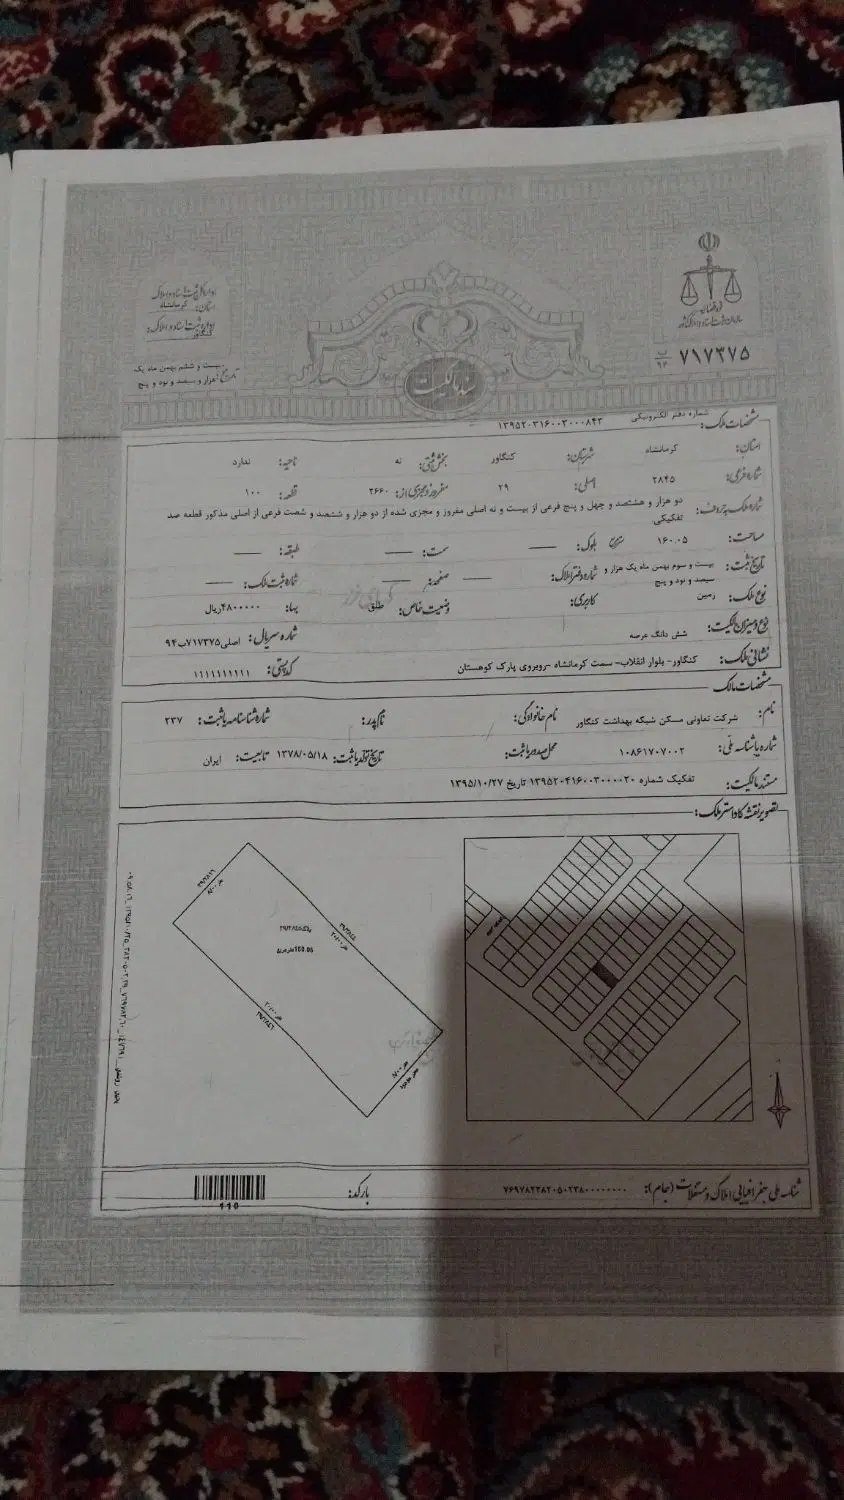 قوه قضائیه
سازمان ثبت اسناد و املاک کشور
۷۱۷۳۷۵ ب ۹۴
اداره کل ثبت اسناد و املاک
استان: کرمانشاه
اداره ثبت اسناد و املاک: کنگاور
تاریخ: بیست و ششم بهمن ماه یک هزار و سیصد و نود و پنج
سند مالکیت
مشخصات ملک: شماره دفتر الکترونیکی ۱۳۹۵۲۰۳۱۶۰۰۳۰۰۰۸۴۳
استان: کرمانشاه شهرستان: کنگاور بخش ثبتی: نه ناحیه: ندارد
شماره فرعی: ۲۸۴۵ اصلی: ۲۹ مفروز و مجزی از: ۲۶۶۰ قطعه: ۱۰۰
شماره ملک به حروف: دو هزار و هشتصد و چهل و پنج فرعی از بیست و نه اصلی مفروز و مجزی شده از دو هزار و ششصد و شصت فرعی از اصلی مذکور قطعه صد
تفکیکی.
مساحت: ۱۶۰.۰۵ مترمربع بلوک: —— سمت: —— طبقه: ——
تاریخ ثبت: بیست و سوم بهمن ماه یک هزار و سیصد و نود و پنج شماره دفتر املاک: —— صفحه: —— شماره ثبت ملک: ——
نوع ملک: زمین کاربری: وضعیت خاص: طلق بها: ۴۸۰۰۰۰۰ریال
نوع و میزان مالکیت: شش دانگ عرصه شماره سریال: اصلی۷۱۷۳۷۵ب۹۴
نشانی ملک: کنگاور- بلوار انقلاب- سمت کرمانشاه -روبروی پارک کوهستان کدپستی: ۱۱۱۱۱۱۱۱۱۱
مشخصات مالک
نام: شرکت تعاونی مسکن شبکه بهداشت کنگاور نام خانوادگی: نام پدر: شماره شناسنامه یا ثبت: ۲۳۷
شماره یا شناسه ملی: ۱۰۸۶۱۷۰۷۰۰۲ محل صدور یا ثبت: تاریخ تولد یا ثبت: ۱۳۷۸/۰۵/۱۸ تابعیت: ایران
مستند مالکیت: تفکیک شماره ۱۳۹۵۲۰۴۱۶۰۰۳۰۰۰۰۲۰ تاریخ ۱۳۹۵/۱۰/۲۷
تصویر نقشه کاداستر ملک:
پلاک ۲۹/۲۸۴۵
160.05 مترمربع
شناسه ملی جغرافیایی املاک و مستغلات (جام):
بارکد:
110